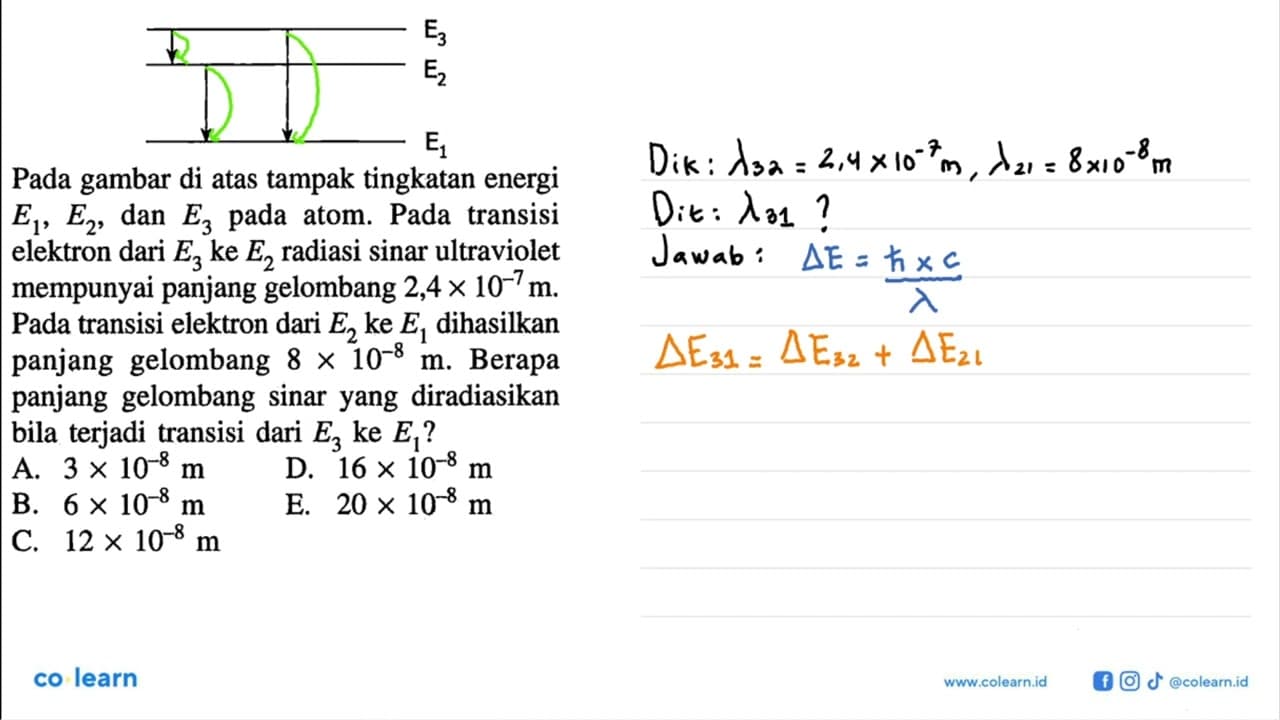 E₃
E₂
E₁
Pada gambar di atas tampak tingkatan energi
E₁, E₂, dan E₃ pada atom. Pada transisi
elektron dari E₃ ke E₂ radiasi sinar ultraviolet
mempunyai panjang gelombang 2,4 × 10⁻⁷ m.
Pada transisi elektron dari E₂ ke E₁ dihasilkan
panjang gelombang 8 × 10⁻⁸ m. Berapa
panjang gelombang sinar yang diradiasikan
bila terjadi transisi dari E₃ ke E₁?
A. 3 × 10⁻⁸ m D. 16 × 10⁻⁸ m
B. 6 × 10⁻⁸ m E. 20 × 10⁻⁸ m
C. 12 × 10⁻⁸ m
Dik : λ₃₂ = 2,4 × 10⁻⁷ m, λ₂₁ = 8 × 10⁻⁸ m
Dit : λ₃₁ ?
Jawab : ΔE = ħ × c
λ
ΔE₃₁ = ΔE₃₂ + ΔE₂₁
co learn
www.colearn.id
@colearn.id